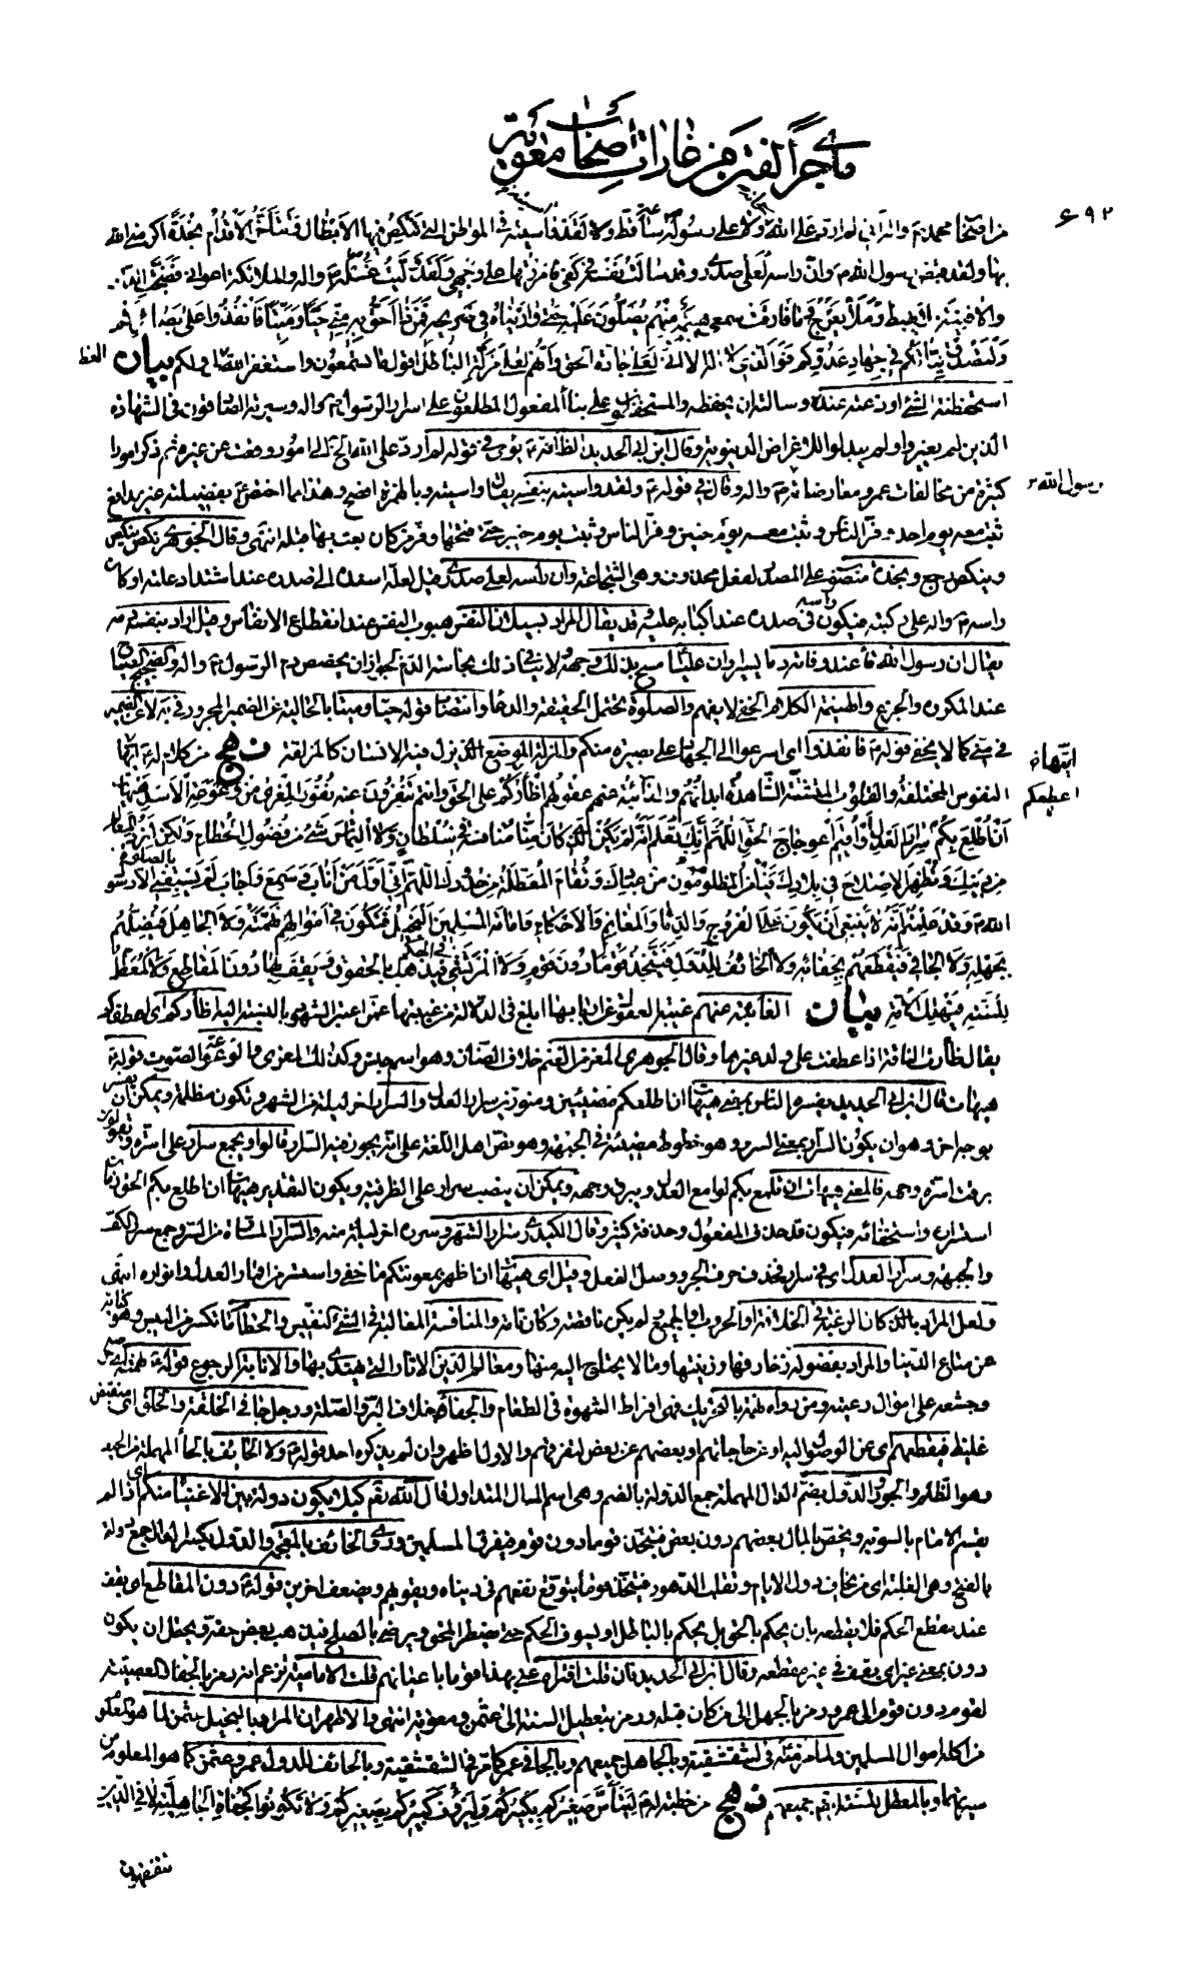 ما جرى الفتن من غارات أصحاب معوية
۶۹۲
من اصحاب محمد ص واله اني لم ارد على الله ولا على رسوله ساعة قط ولقد واسيته في المواطن التي تنكص فيها الابطال وتتأخر الاقدام نجدة اكرمني الله
بها ولقد قبض رسول الله ص وان راسه لعلى صدري وقد سالت نفسه في كفي فامررتها على وجهي ولقد وليت غسله ص واله والملائكة اعواني فضجت الدار
والافنية ملا يهبط وملأ يعرج وما فارقت سمعي هينمة منهم يصلون عليه حتى واريناه في ضريحه فمن ذا احق به مني حيا وميتا فانفذوا على بصائركم
ولتصدق نياتكم في جهاد عدوكم فو الذي لا اله الا هو اني لعلى جادة الحق وانهم لعلى مزلة الباطل اقول ما تسمعون واستغفر الله لي ولكم بيان
استحفظته الشئ اودعته عنده وسالته ان يحفظه والمستحفظون على بناء المفعول المطلعون على اسرار الرسول ص واله وسيرته الصادقون في الشهادة
الذين لم يغيروا ولم يبدلوا للاغراض الدنيوية وقال ابن ابي الحديد الظ انه ع يومى في قوله لم ارد على الله الخ الى امور وقعت عن غيره ثم ذكر امورا
كثيرة من مخالفات عمر ومعارضاته ص واله وقال في قوله ع ولقد واسيته بنفسي يقال واسيته وبالهمزة افصح وهذا مما اختص ع بفضيلته غير مدافع
رسول الله ص
ثبت معه يوم احد وفر الناس وثبت معه يوم حنين وفر الناس وثبت يوم خيبر حتى فتحها وفر من كان بعث بها قبله انتهى وقال الجوهري نكص ينكص
وينكص رجع ونجدة منصوب على المصدر لفعل محذوف وهي الشجاعة وان راسه لعلى صدري قيل لعله اسنده الى صدره عند اشتداد علته او كان
راسه ص واله على ركبته فيكون راسه في صدره عند اكبابه عليه وقد يقال المراد بسيلان النفس هبوب النفس عند انقطاع الانفاس وقيل اراد بنفسه دمه
يقال ان رسول الله قاء عند وفاته دما يسيرا وان عليا مسح بذلك وجهه ولا ينافي ذلك نجاسة الدم لجواز ان يخصص دم الرسول ص واله والضجيج الصياح
عند المكروه والجزع والهينمة الكلام الخفي لا يفهم والصلوة يحتمل الحقيقة والدعاء وانتصاب قوله حيا وميتا بالحالية عن الضمير المجرور في به لا عن الضمير
في مني كما لا يخفى قوله ع فانفذوا اي اسرعوا الى الجهاد على بصيرة منكم والمزلة الموضع الذي يزل فيه الانسان كالمزلقة نهج من كلام له ع ايتها
النفوس المختلفة والقلوب المتشتتة الشاهدة ابدانهم والغائبة عنهم عقولهم اظأركم على الحق وانتم تنفرون عنه نفور المعزى من وعوعة الاسد هيهات
ان اطلع بكم سرار العدل او اقيم اعوجاج الحق اللهم انك تعلم انه لم يكن الذي كان منا منافسة في سلطان ولا التماس شئ من فضول الحطام ولكن لنرد المعالم
من دينك ونظهر الاصلاح في بلادك فيامن المظلومون من عبادك وتقام المعطلة من حدودك اللهم اني اول من اناب وسمع واجاب لم يسبقني الا رسول
الله ص بالصلوة وقد علمتم انه لا ينبغي ان يكون على الفروج والدماء والمغانم والاحكام وامامة المسلمين البخيل فتكون في اموالهم نهمته ولا الجاهل فيضلهم
بجهله ولا الجافي فيقطعهم بجفائه ولا الخائف للدول فيتخذ قوما دون قوم ولا المرتشي في الحكم فيذهب بالحقوق ويقف بها دون المقاطع ولا المعطل
للسنة فيهلك الامة بيان الغائبة عنهم
يقال ظأرت الناقة اذا عطفت على ولد غيرها وقال الجوهري المعز من الغنم خلاف الضأن وهو اسم جنس وكذلك المعزى والوعوعة الصوت قوله ع
هيهات قال ابن ابي الحديد يفسره الناس بمعنى هيهات ان اطلعكم مضيئين ومنورين سرار العدل والسرار اخر ليلة من الشهر وتكون مظلمة ويمكن ان يفسر
بوجه اخر وهو ان يكون السرار بمعنى السرور وهو خطوط مضيئة في الجبهة وهو نص اهل اللغة على انه يجوز فيه السرار قالوا ويجمع سرار على اسرة ويقولون
برقت اسرة وجهه فالمعنى هيهات ان تلمع بكم لوامع العدل ويبرق وجهه ويمكن ان ينصب سرار على الظرفية ويكون التقدير هيهات ان اطلع بكم الحق زمان
استسراره واستخفائه فيكون قد حذف المفعول وحذفه كثير وقال الكيدري سرار الشهر وسرره اخر ليلة منه والسرار المسارة من السر وجمع سرر الكف
والجبهة وسرار العدل اي في سرار فحذف حرف الجر ووصل الفعل وقيل اي هيهات ان اظهر بمعونتكم ما خفي واستسر من اقمار العدل وانواره انتهى
ولعل المراد بالذي كان الرغبة في الخلافة او الحروب او الجميع لم يكن ناقصة وكان تامة والمنافسة المغالبة في الشئ النفيس والحطام ما تكسر من اليبس وهو كناية
عن متاع الدنيا والمراد بفضوله زخارفها وزينتها وما لا يحتاج اليه منها ومعالم الدين الاثار التي يهتدى بها والانابة الرجوع قوله ع نهمته اي حرصه
وجشعه على اموال رعيته ومن رواه نهمة بالتحريك فهي افراط الشهوة في الطعام والجفاء خلاف البر والصلة ورجل جافي الخلقة والخلق اي منقبض
غليظ فيقطعهم اي عن الوصول اليه او عن حاجاتهم او بعضهم عن بعض لتفرقهم والاول اظهر وان لم يذكره احد قوله ع ولا الحائف بالحاء المهملة من الحيف
وهو الظلم والجور والدول بضم الدال المهملة جمع الدولة بالضم وهي اسم المال المتداول قال الله تعم كيلا يكون دولة بين الاغنياء منكم اي اذا لم
يقسم الامام بالسوية ويخص بالمال بعضهم دون بعض فيتخذ قوما دون قوم فيفرق المسلمين وروي والخائف بالمعجمة والدول بكسر الدال جمع دولة
بالفتح وهي الغلبة اي من يخاف دول الايام وتقلب الدهور فيتخذ قوما يتوقع نفعهم في دنياه ويقويهم ويضعف اخرين قوله ع دون المقاطع اي يقف
عند مقطع الحكم فلا يقطعه بان يحكم بالحق بل يحكم بالباطل او يسوف الحكم حتى يضطر المحق ويرضى بالصلح فيذهب بعض حقه ويحتمل ان يكون
دون بمعنى غير اي يقف في غير مقطعه وقال ابن ابي الحديد فان قلت افتراه عنى بهذا قوما باعيانهم قلت الامامية تزعم انه رمز بالجفاء والعصبية
لقوم دون قوم الى عمر ورمز بالجهل الى من كان قبله ورمز بتعطيل السنة الى عثمن ومعوية انتهى والاظهر ان المراد بالبخيل عثمن لما هو المعلوم
من اكله اموال المسلمين ولما مر منه في الشقشقية وبالجاهل جميعهم وبالجافي عمر كما مر في الشقشقية وبالحائف للدول عمر وعثمن كما هو المعلوم من
سيرتهما وبالمعطل للسنة ايضا جميعهم نهج من خطبة له ع ليتأس صغيركم بكبيركم وليرؤف كبيركم بصغيركم ولا تكونوا كجفاة الجاهلية لا في الدين